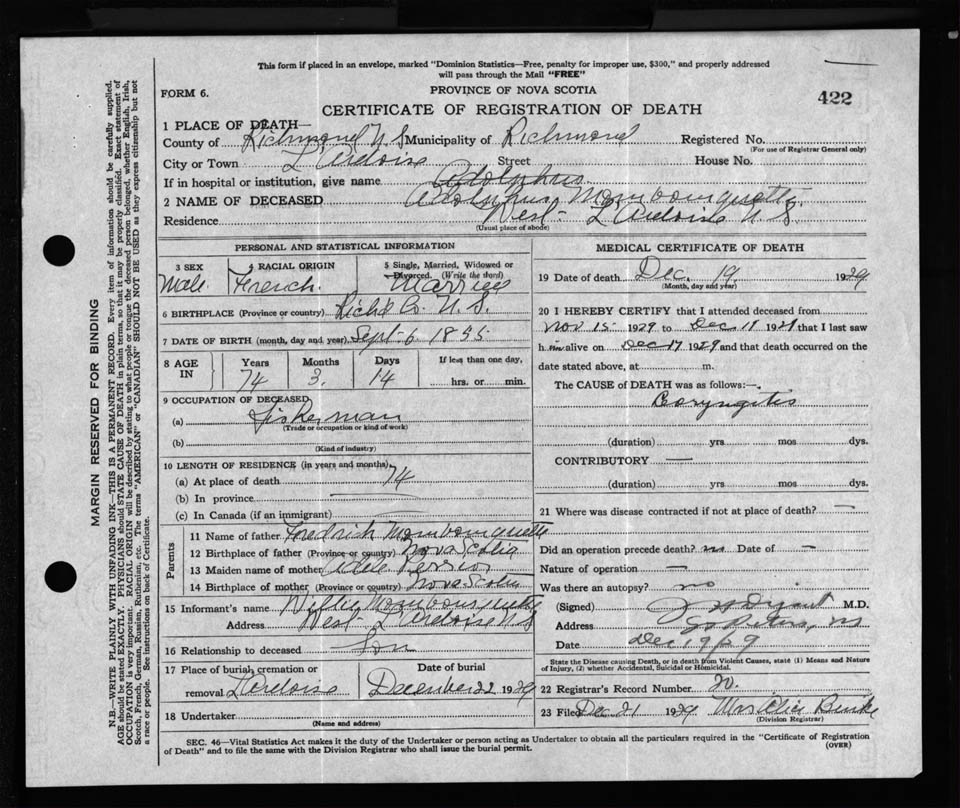 This form if placed in an envelope, marked "Dominion Statistics—Free, penalty for improper use, $300," and properly addressed
will pass through the Mail "FREE"
FORM 6.
PROVINCE OF NOVA SCOTIA
422
CERTIFICATE OF REGISTRATION OF DEATH
1 PLACE OF DEATH—
County of Richmond N.S. Municipality of Richmond Registered No.
(For use of Registrar General only)
City or Town L'Ardoise Street House No.
If in hospital or institution, give name Adolphus
2 NAME OF DECEASED Adolphus Mombourquette
Residence West L'Ardoise N.S
(Usual place of abode)
PERSONAL AND STATISTICAL INFORMATION
3 SEX 4 RACIAL ORIGIN 5 Single, Married, Widowed or
Divorced. (Write the word)
Male French. Married
6 BIRTHPLACE (Province or country) Richd Co. N.S.
7 DATE OF BIRTH (month, day and year) Sept. 6 1855
8 AGE IN Years Months Days If less than one day,
74 3. 14 hrs. or min.
9 OCCUPATION OF DECEASED
(a) Fisherman
(Trade or occupation or kind of work)
(b)
(Kind of industry)
10 LENGTH OF RESIDENCE (in years and months)
(a) At place of death 74
(b) In province
(c) In Canada (if an immigrant)
Parents
11 Name of father Fredrick Mombourquette
12 Birthplace of father (Province or country) Nova Scotia
13 Maiden name of mother Adele
14 Birthplace of mother (Province or country) Nova Scotia
15 Informant's name Mombourquette
Address West L'Ardoise N.S
16 Relationship to deceased Son
17 Place of burial, cremation or Date of burial
removal L'Ardoise December 22 1929
18 Undertaker
(Name and address)
MEDICAL CERTIFICATE OF DEATH
19 Date of death Dec. 19 1929
(Month, day and year)
20 I HEREBY CERTIFY that I attended deceased from
Nov 15 1929 to Dec 1929 that I last saw
him alive on Dec 17 1929 and that death occurred on the
date stated above, at m.
The CAUSE of DEATH was as follows:—
(duration) yrs mos dys.
CONTRIBUTORY —
(duration) yrs mos dys.
21 Where was disease contracted if not at place of death? —
Did an operation precede death? no Date of —
Nature of operation —
Was there an autopsy? no
(Signed) M.D.
Address St Peters, NS
Date Dec 19/29
State the Disease causing Death, or in death from Violent Causes, state (1) Means and Nature
of Injury, (2) whether Accidental, Suicidal or Homicidal.
22 Registrar's Record Number 20.
23 Filed Dec 21 1929 Mrs
(Division Registrar)
SEC. 46—Vital Statistics Act makes it the duty of the Undertaker or person acting as Undertaker to obtain all the particulars required in the "Certificate of Registration
of Death" and to file the same with the Division Registrar who shall issue the burial permit.
(OVER)
MARGIN RESERVED FOR BINDING
N.B.—WRITE PLAINLY WITH UNFADING INK—THIS IS A PERMANENT RECORD. Every item of information should be carefully supplied.
AGE should be stated EXACTLY. PHYSICIANS should STATE CAUSE OF DEATH in plain terms, so that it may be properly classified. Exact statement of
OCCUPATION is very important. RACIAL ORIGIN will be described by stating to what people or tongue the deceased person belonged, whether English, Irish,
Scotch, French, German, Russian, Ruthenian, etc. The terms "AMERICAN" or "CANADIAN" SHOULD NOT BE USED as they express citizenship but not
a race or people. See instructions on back of Certificate.